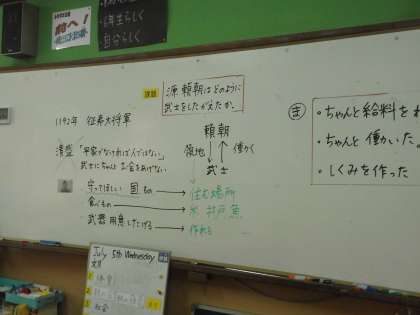 前へ！
自分らしく
課題
源頼朝はどのように
武士をしたがえたか。
1192年 征夷大将軍
清盛
「平家でなければ人ではない」
武士にちゃんとお金をあげない
守ってほしい 国もの
食べもの
武器用意したげる
頼朝
領地
働く
武士
住む場所
米 井戸 魚
作れる
ま
・ちゃんと給料をわ
・ちゃんと働いた。
・しくみを作った
July 5th Wednesday
1
2
3
社会